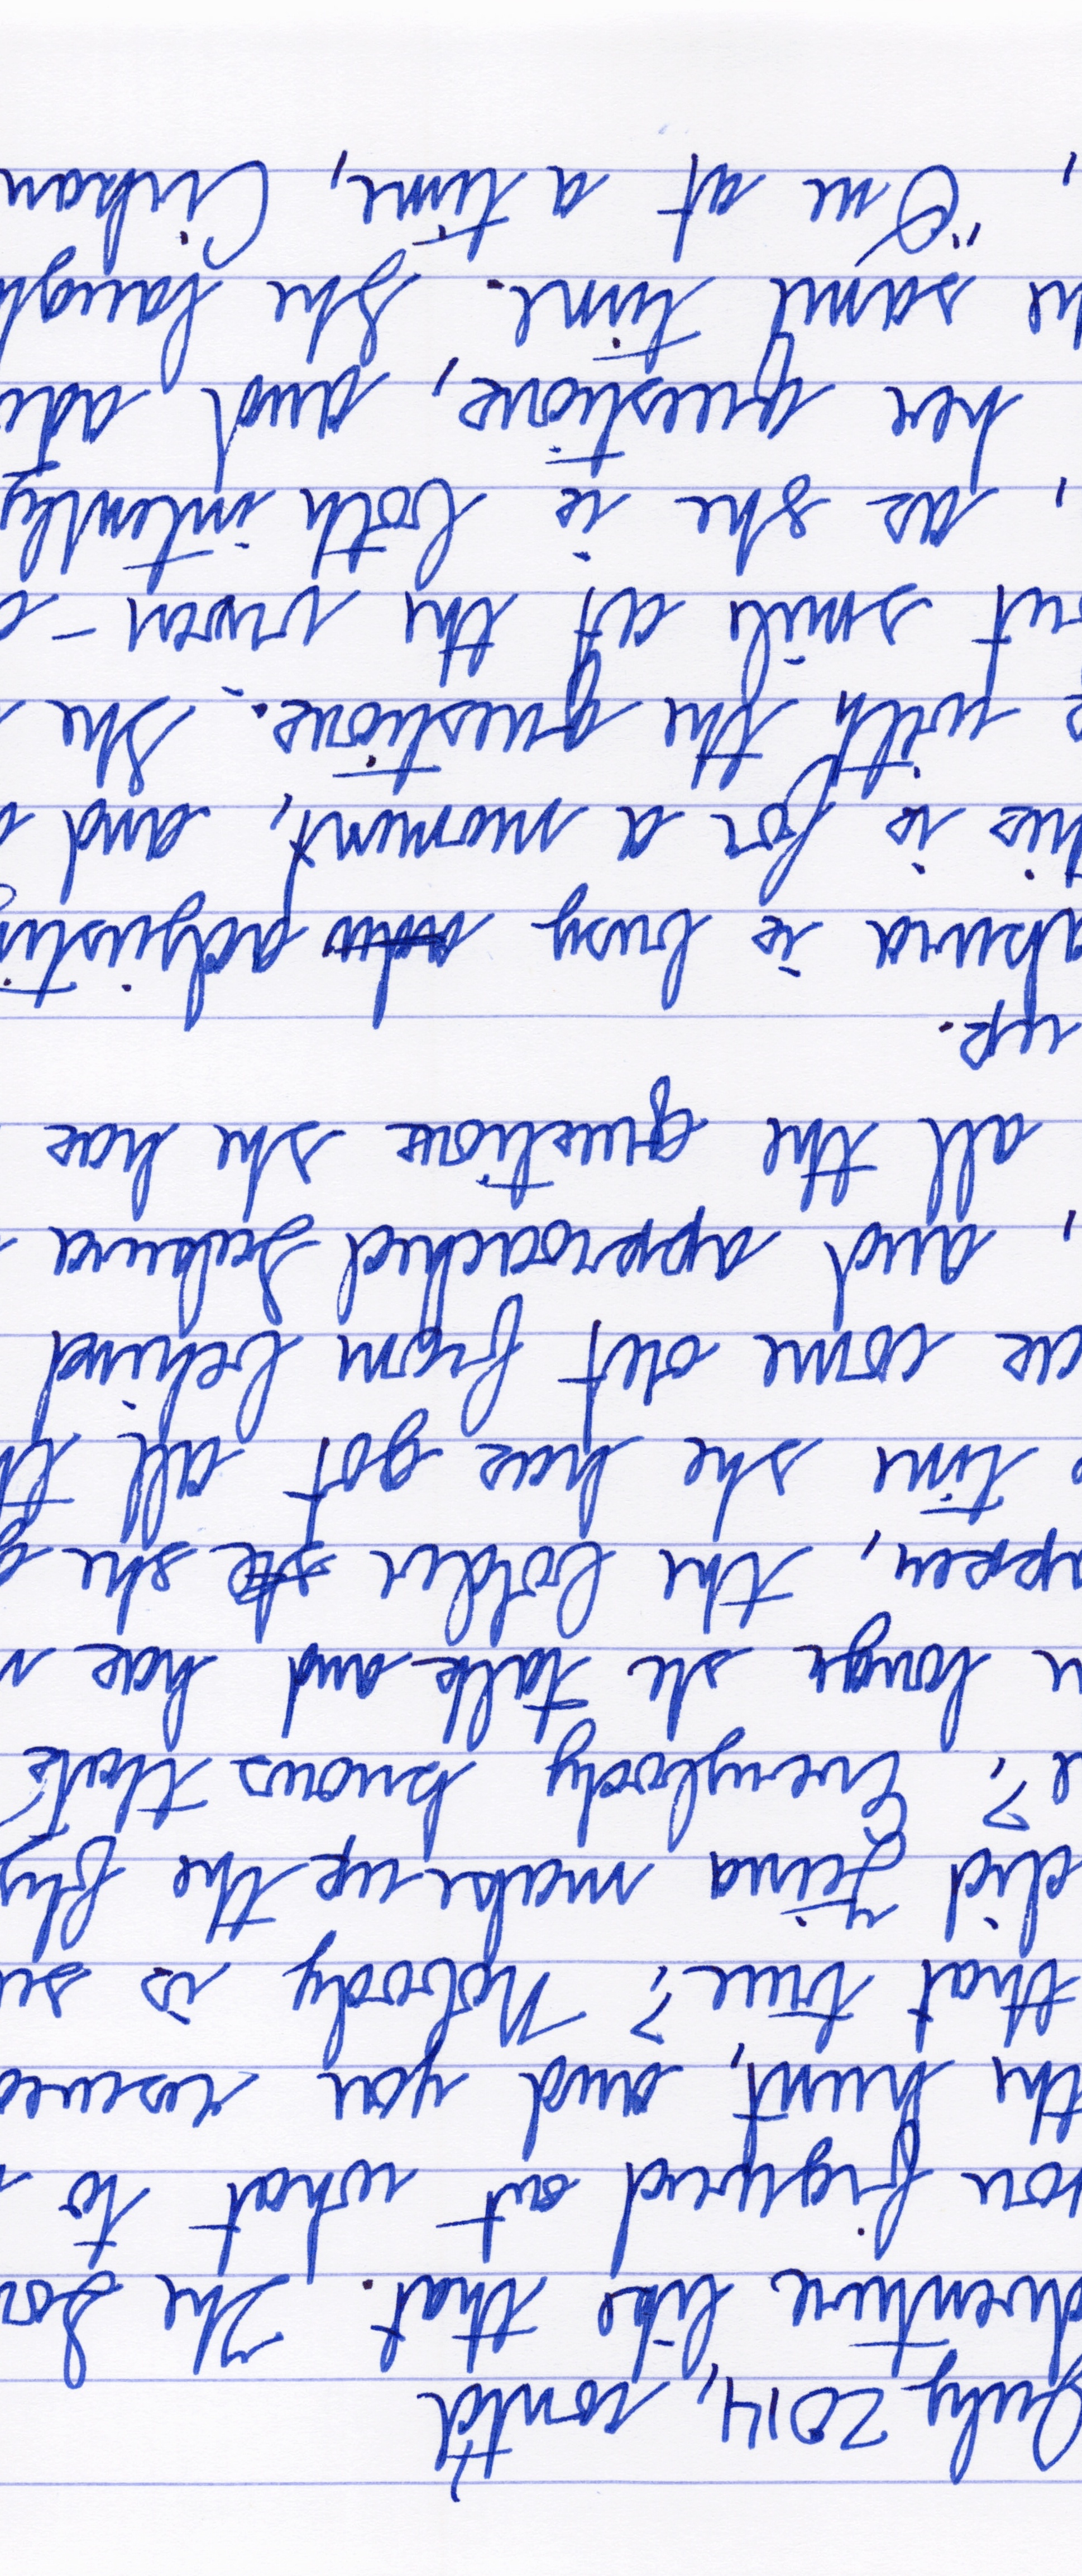 July 2014, cont'd
dventure like that. The Sou
you figured out what to
the hunt, and you rescued
that true? Nobody is su
did Zeina make up the fly
e? Everybody knows that
e longer she talks and has n
appen, the bolder she she g
e time she has got all th
as come out from behind
, and approached Sakura
all the questions she has
up.
akura is busy adjustin
this is for a moment, and
e with the questions. She
but smile at the vixen - a
, as she is both intently
her questions, and ado
he same time. She laugh
, "One at a time, Cirban